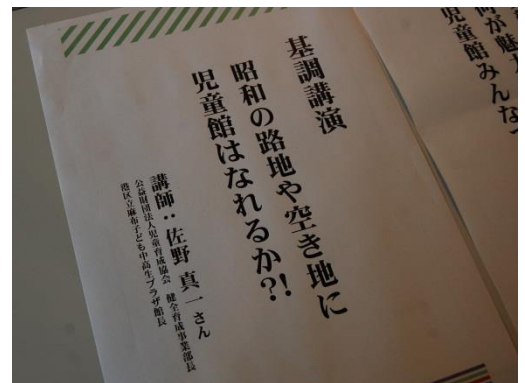 基調講演
昭和の路地や空き地に
児童館はなれるか?!
講師：佐野 真一さん
公益財団法人児童育成協会 健全育成事業部長
港区立麻布子ども中高生プラザ館長
何が魅
児童館みんな